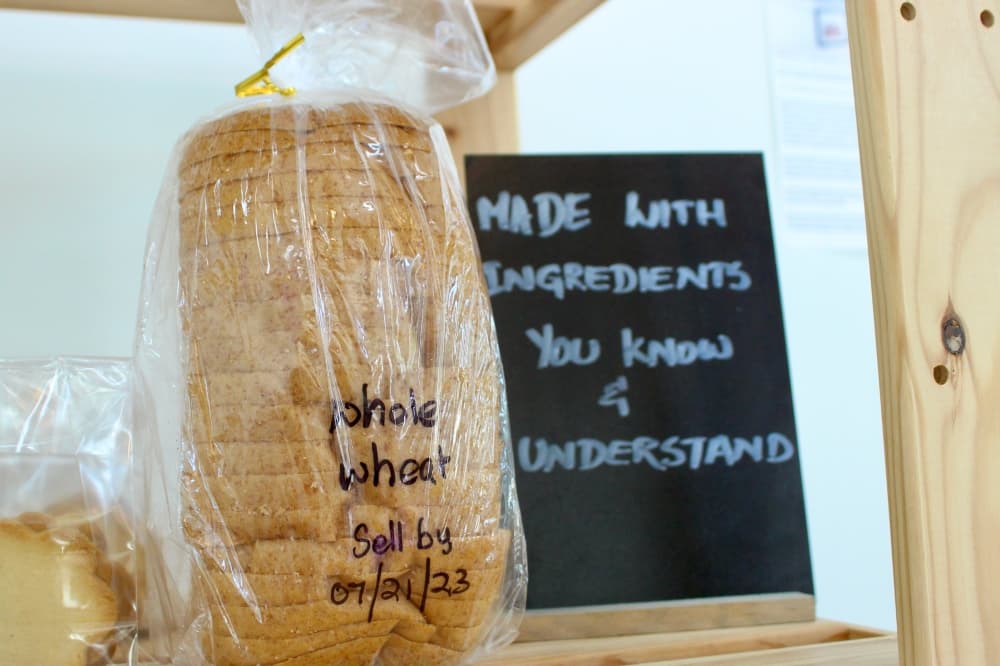 whole
wheat
Sell by
07/21/23
MADE WITH
INGREDIENTS
YOU KNOW
&
UNDERSTAND